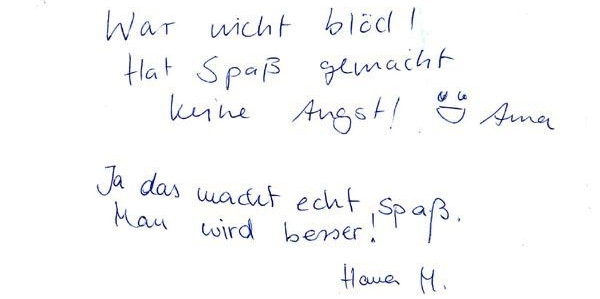 War nicht blöd!
Hat Spaß gemacht
keine Angst! Anna
Ja das macht echt Spaß.
Man wird besser!
Hanna M.